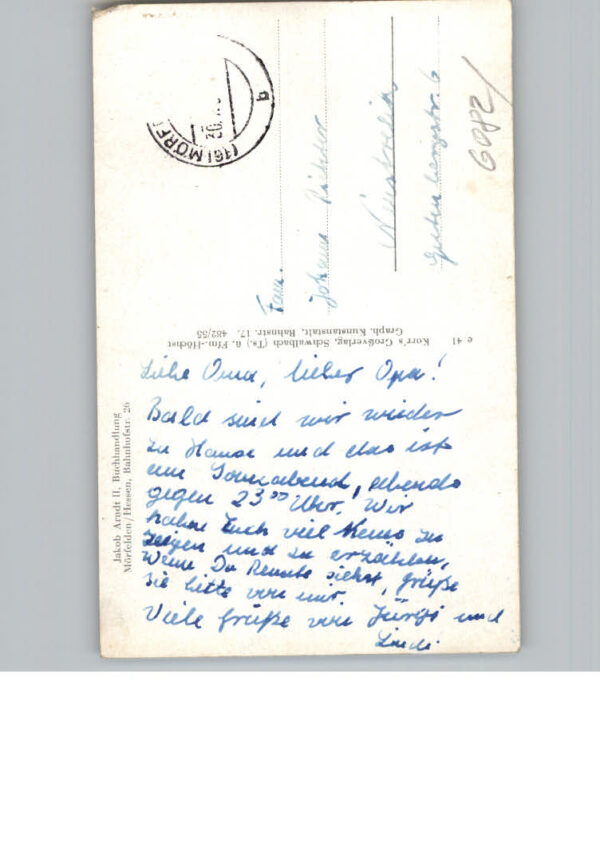 Liebe Oma, lieber Opa!
Bald sind wir wieder
zu Hause und das ist
am Sonnabend, abends
gegen 23⁰⁰ Uhr. Wir
haben Euch viel Neues zu
zeigen und zu erzählen,
Wenn Du Renate siehst, grüße
sie bitte von mir.
Viele Grüße von Jürgi und
Lindi
Fam.
Johannes Richter
6082/
(16) MÖRF
20.
b
Jakob Arndt II, Buchhandlung
Mörfelden/Hessen, Bahnhofstr. 26
e 41 Korr's Großverlag, Schwalbach (Ts.) ü. Ffm.-Höchst
Graph. Kunstanstalt, Bahnstr. 17. 482/55